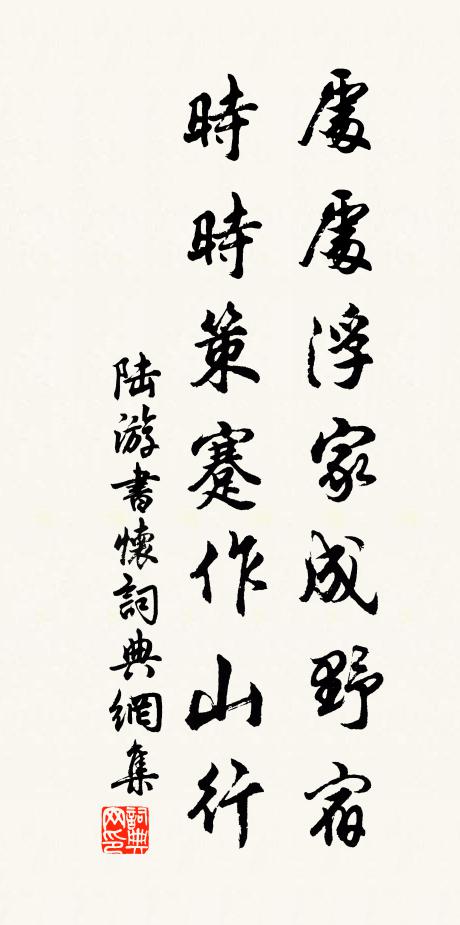 處處浮家成野宿
時時策蹇作山行
陸游書懷詞典網集
詞典网印